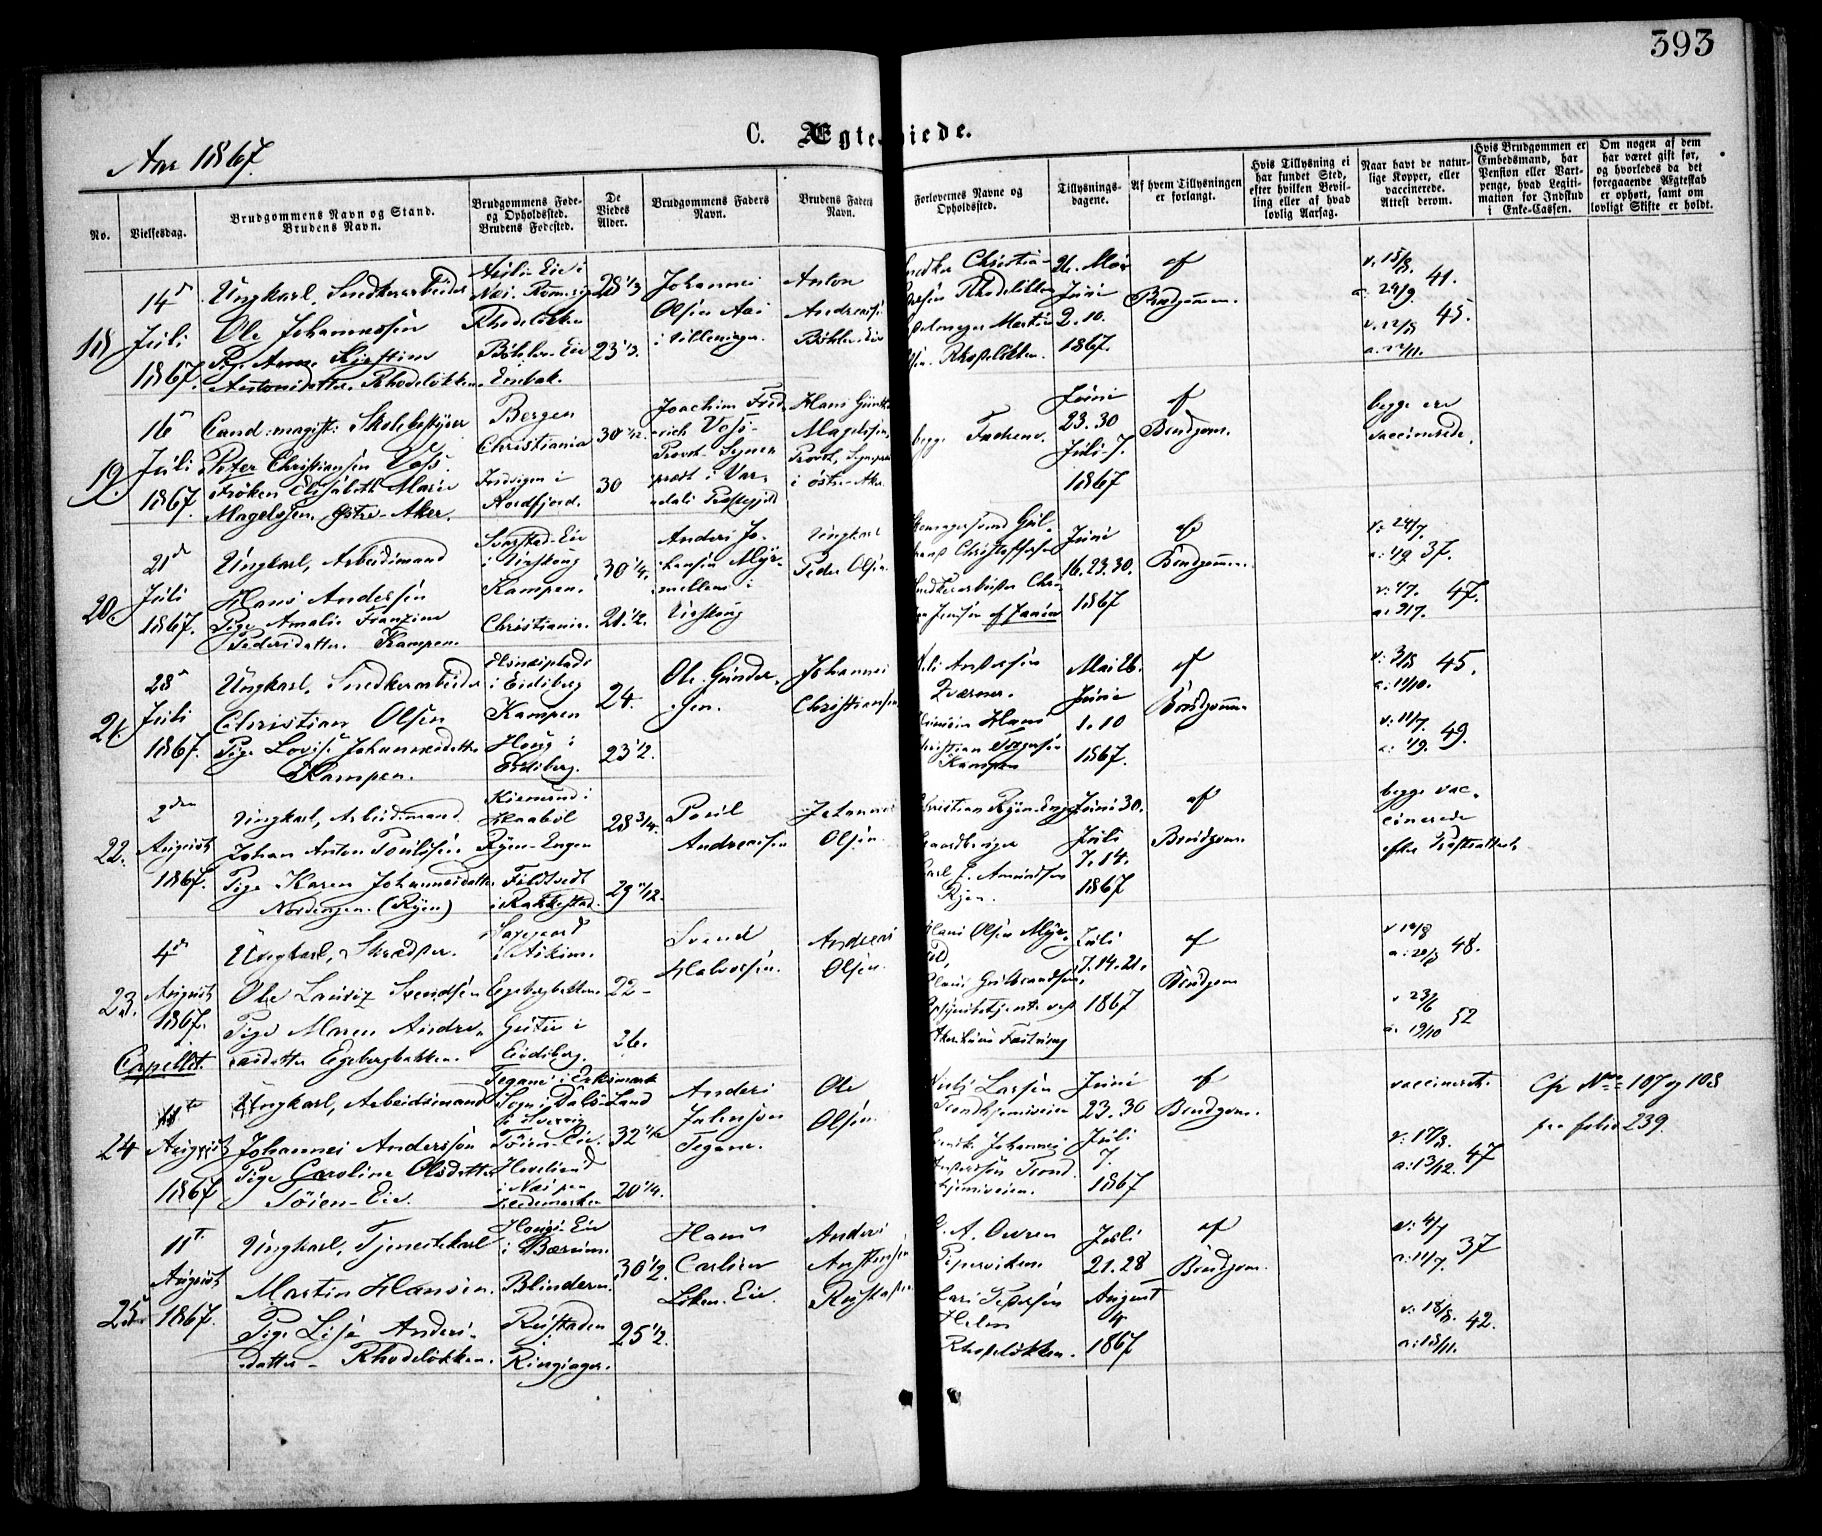 393
C. Ægte
iede.
Aar 1867.
No.
Vielsesdag.
Brudgommens Navn og Stand.
Brudens Navn.
Brudgommens Føde-
og Opholdssted.
Brudens Fødested.
De
Viedes
Alder.
Brudgommens Faders
Navn.
Brudens Faders
Navn.
Forlovernes Navne og
Opholdssted.
Tillysnings-
dagene.
Af hvem Tillysningen
er forlangt.
Hvis Tillysning ei
har fundet Sted,
efter hvilken Bevil-
ling eller af hvad
lovlig Aarsag.
Naar havt de natur-
lige Kopper, eller
vaccinerede.
Attest derom.
Hvis Brudgommen er
Embedsmand, har
Pension eller Vart-
penge, hvad Legiti-
mation for Indskud
i Enke-Cassen.
Om nogen af dem
har været gift før,
og hvorledes da det
foregaaende Ægteskab
er ophørt, samt om
lovligt Skifte er holdt.
18
14de
Juli
1867.
Ungkarl, Snedkerarbeider
Ole Johannessen
Pige Anne Kirstine
Antonsdatter Rhodeløkken
Rhodeløkken
Bøhler-Eie
Enebak.
28 1/3
23 1/3.
Johannes
Olsen Aas
Anton
Andreas
Bøhler-Eie
Rhodeløkken
Rhodeløkken.
26. Mai
Juni
2. 10.
1867.
af
Brudgommen.
v. 15/8
a: 24/9 41.
v. 12/8
a: 22/11. 45.
19.
16de
Juli
1867.
Cand: magist: Skolebestyrer
Peter Christiansen Voss.
Frøken Elisabeth Marie
Magelssen, Østre-Aker.
Bergen
Christiania
Nordfjord.
30 1/2.
30
Joachim Fred-
rich Voss-
Provst-Sogne-
præst i Var-
dals Præstegjeld
Hans Gunth
Magelssen,
Provst, Sogne
i østre-Aker
begge Fædrene.
Juni
23. 30
Juli 7.
1867
af
Brudgom.
begge ere
vaccinerede.
20
21de
Juli
1867.
Ungkarl, Arbeidsmand
Hans Andersen
Pige Amalie Franzine
Pedersdatter. Kampen.
Svarstad-Eie
Kampen.
Christiania.
30 1/4.
21. 1/2.
Anders Jo-
hansen Myr-
mellem i
Ungkarl
Peder Olsen
Christoffersen
Snedkerarbeider Chr
Jensen
Juni
16. 23. 30.
1867
af
Brudgommen.
v: 24/7
a: 1/9 37.
v: 4/7.
a: 3/7. 47.
21
28de
Juli
1867.
Ungkarl, Snedkerarbeider
Christian Olsen
Pige Lovise Johannesdatter
Kampen.
Elsnesplads
i Eidsberg
Kampen
Houg i
Eidsberg.
24.
23 1/2.
Ole Gunder-
sen.
Johannes
Christiansen
Andersen
Kværner.
Hans
Christian Jørgensen
Kampen
Mai 26.
Juni
1. 10
1867.
af
Brudgommen
v: 3/8
a: 10/10. 45.
v: 11/7.
a: 1/9. 49.
22.
2den
August
1867.
Ungkarl, Arbeidsmand
Johan Anton Poulsen
Pige Karen Johannesdatter
Nordengen. (Ryen)
Kraabøl
Ryen-Engen
Fieldtvedt
i Rakkestad.
28 3/4.
29 1/12.
Poul
Andreassen
Johannes
Olsen
Christian Ryen-Enge
Strandberger
Carl E. Amundsen
Ryen.
Juni 30.
Juli
7. 14.
1867
af
Brudgom.
begge vac-
cinerede
efter Præsteattest.
23.
4de
August
1867.
Capellet.
Ungkarl, Skrædder.
Ole Lauriz Svendsen
Pige Maren Andre-
asdatter Egebergbakken.
i Askim.
Egebergbakken
Eidsberg.
22-
26.
Svend
Halvorsen.
Andreas
Olsen.
Hans Olsen Myr
Gulbrandsen,
Akershuus Fæstning
Juli
7. 14. 21.
1867
af
Brudgom
v 10/8
a: 20/9 48.
v 23/6
a: 19/10 52
24
11te
August
1867
Ungkarl, Arbeidsmand
Johannes Andersson
Pige Caroline Olsdatter
Tøien-Eie.
Sogn i Dals-Land
i Sverrig
Tøien-Eie.
i Næs paa
Hedemarken
32 1/2
20 1/4.
Anders
Johnson
Tegane.
Ole
Olsen
Niels Larsen
Trondhjemsveien
Johannes
Anderssen Trond-
hjemsveien.
Juni
23. 30
Juli
7.
1867
af
Brudgom.
vaccineret.
v: 17/8.
a: 13/12. 47
Cfr No 107 og 108
paa folio 239.
25
11te
August
1867.
Ungkarl, Tjenestekarl
Martin Hansen
Pige Lise Anders-
datter- Rhodeløkken.
Hougs-Eie
i Bærum.
Blindern.
Rustaden
i
Ringsager.
30 1/2.
25 1/2.
Hans
Carlsen
Løken-Eie.
Anders
Arstensen
Rustaden
A. Ovren
Pipervigen.
Lars Pedersen
Holm
Rhodeløkken.
Juli
21. 28
August
4
1867
af
Brudgom.
v: 4/7
a: 11/7. 37
v: 18/8.
a: 18/11. 42.